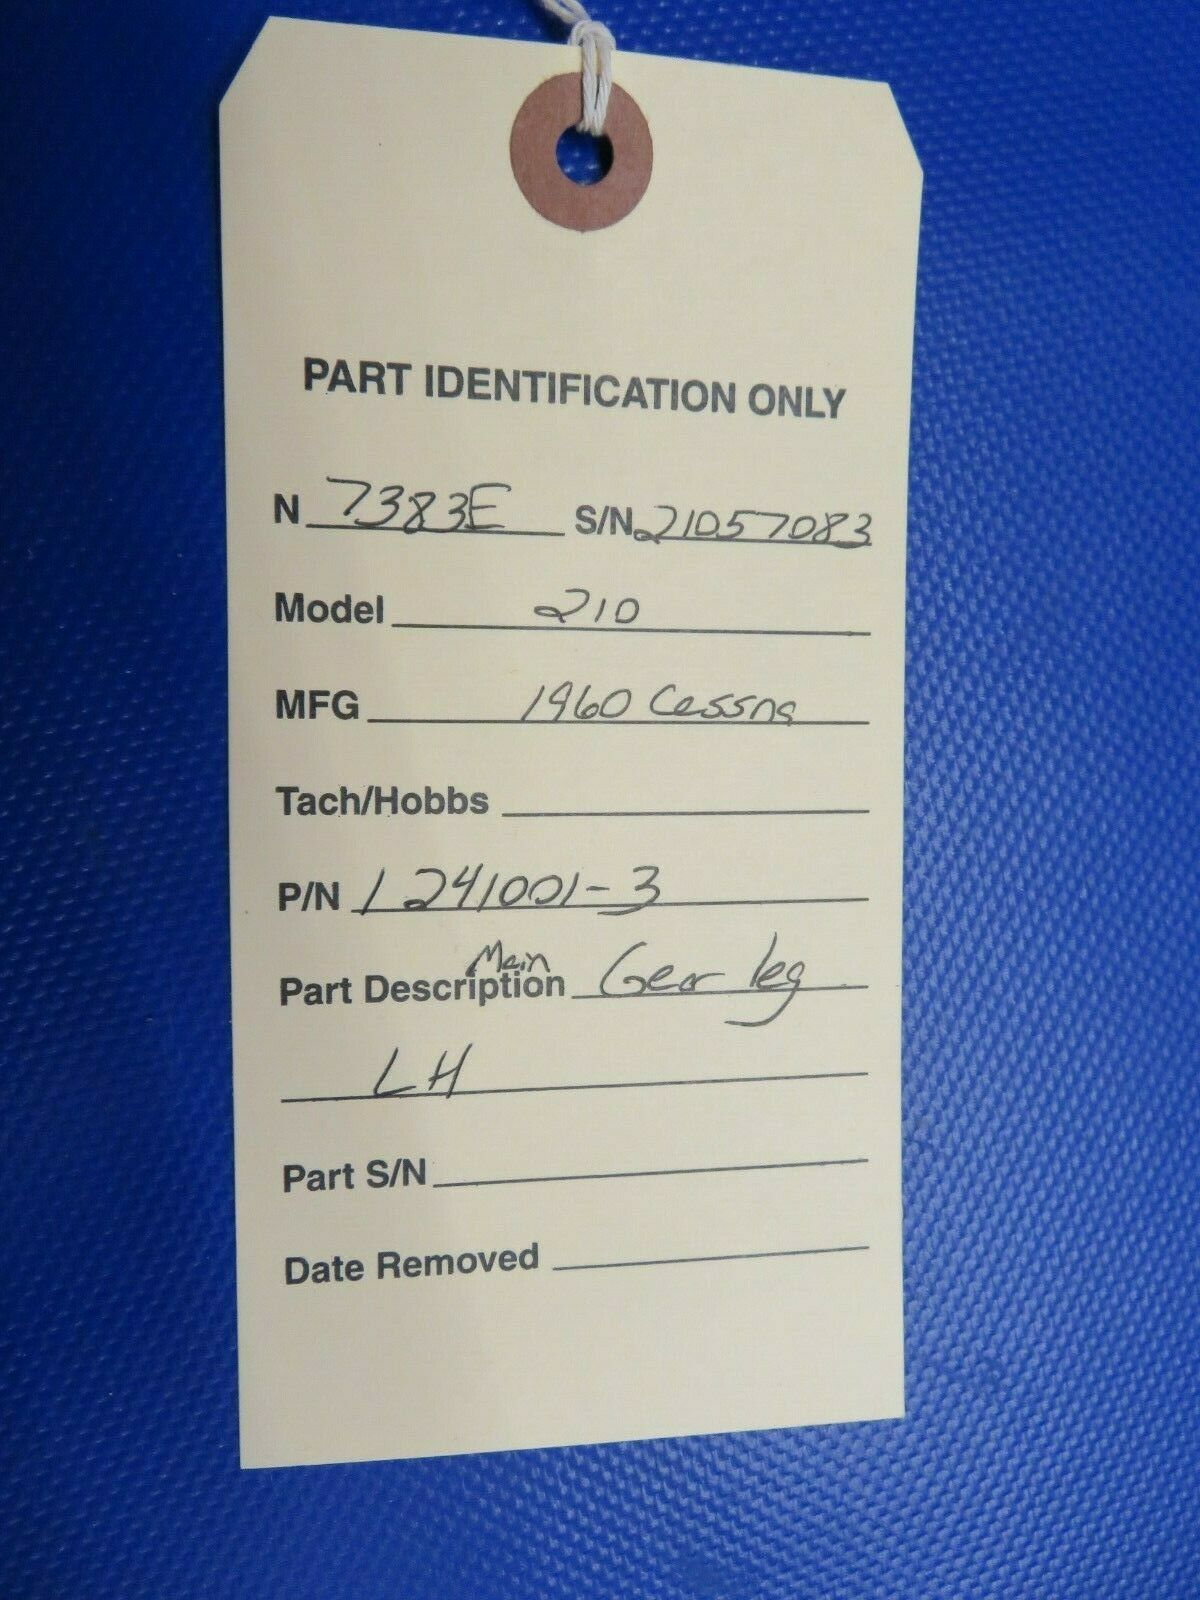 PART IDENTIFICATION ONLY
N 7383E S/N 21057083
Model 210
MFG 1960 Cessna
Tach/Hobbs
P/N 1241001-3
Part Description Main Gear leg
LH
Part S/N
Date Removed